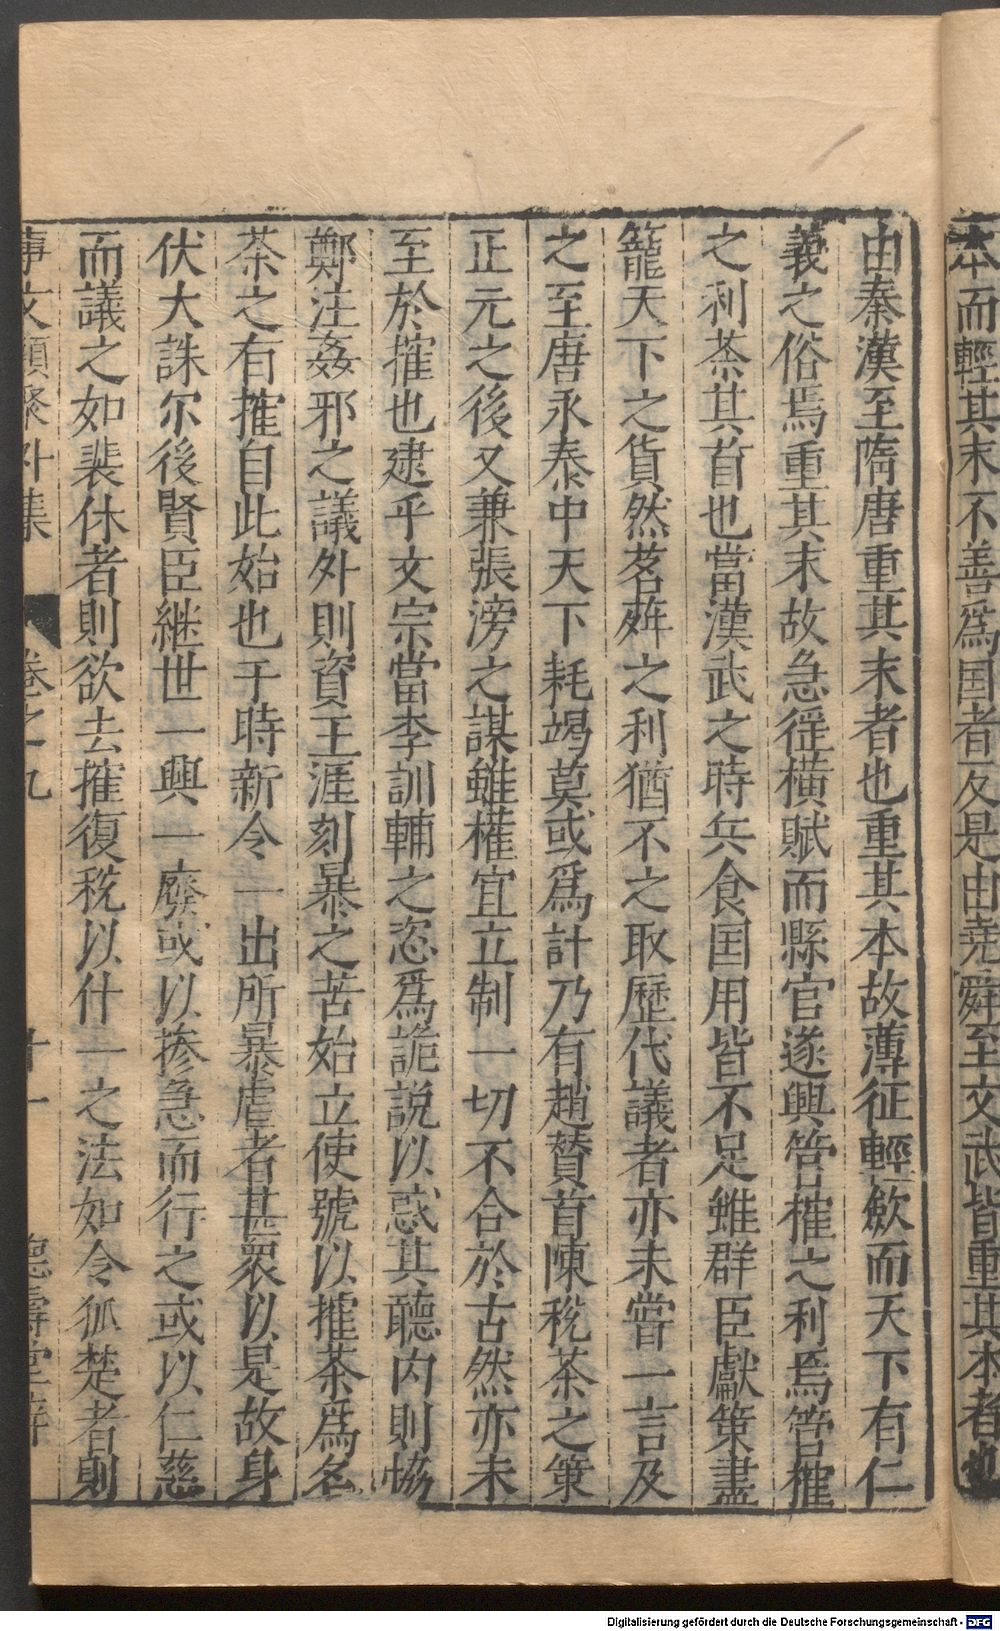 本而輕其末不善爲国者反是由堯舜至文武皆重其本者也
由秦漢至隋唐重其末者也重其本故薄征輕歛而天下有仁
義之俗焉重其末故急徑橫賦而縣官遂興筦榷之利焉筦榷
之利茶其首也當漢武之時兵食国用皆不足雖群臣獻策盡
籠天下之貨然茗荈之利猶不之取歷代議者亦未嘗一言及
之至唐永泰中天下耗竭莫或爲計乃有趙賛首陳稅茶之策
正元之後又兼張滂之謀雖權宜立制一切不合於古然亦未
至於搉也逮乎文宗當李訓輔之恣爲詭說以惑其聽内則恊
鄭注姦邪之議外則資王涯刻暴之苦始立使號以搉茶爲名
茶之有搉自此始也于時新令一出所暴虐者甚衆以是故身
伏大誅尔後賢臣継世一興一廢或以摻急而行之或以仁慈
而議之如裴休者則欲去搉復稅以什一之法如令狐楚者則
事文類聚外集 卷之九 廿一 德壽堂梓
Digitalisierung gefördert durch die Deutsche Forschungsgemeinschaft - DFG